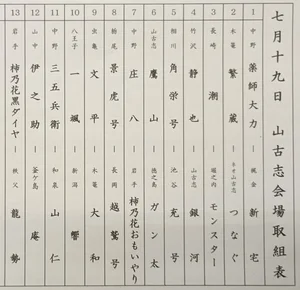 七月十九日 山古志会場取組表
1 中野 薬師大力 ー 梶金 新宅
2 木篭 繁蔵 ー ネオ山古志 つなぐ
3 長崎 潮 ー 堀之内 モンスター
4 竹沢 静也 ー 山古志 銀河
5 相川 角栄号 ー 池谷 充号
6 山古志 鷹山 ー 徳之島 ガン太
7 中野 庄八 ー 岩手 柿乃花おもいやり
8 粉尾 景虎号 ー 長岡 越鷲号
9 虫亀 文平 ー 木篭 大和
10 八王子 一颯 ー 新潟 響
11 中野 三五兵衛 ー 和菜 山仁
12 山中 伊之助 ー 釜ケ島 庵
13 岩手 柿乃花黒ダイヤ ー 秩父 龍勢